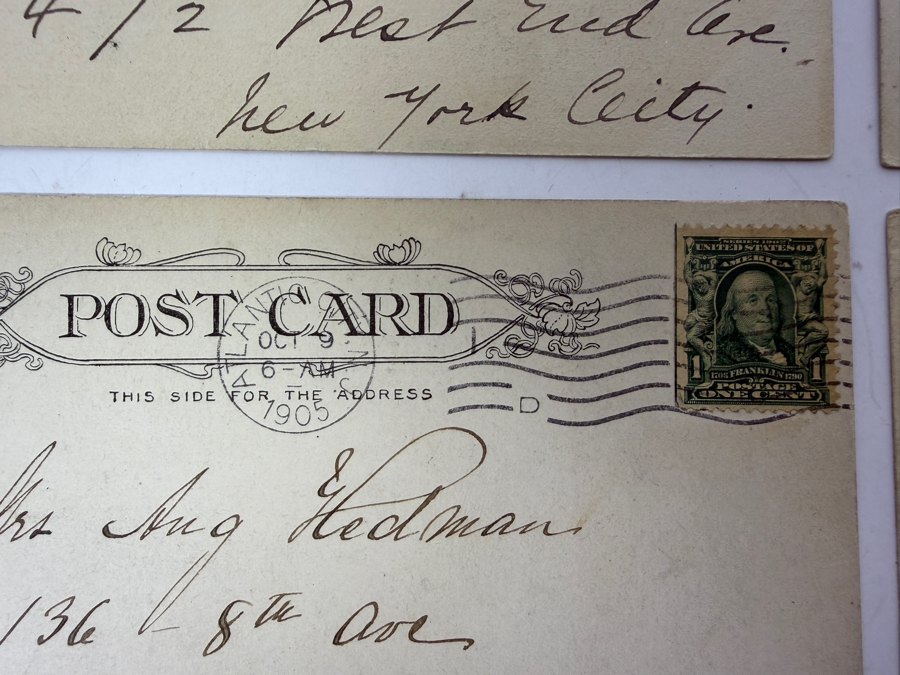 412 West End Ave.
New York City.
POST CARD
THIS SIDE FOR THE ADDRESS
ATLANTIC CITY
OCT 9
6-AM
1905
D
SERIES 1902
UNITED STATES OF
AMERICA
1 1
1706 FRANKLIN 1790
POSTAGE
ONE CENT
Mrs Aug Hedman
136 - 8th Ave